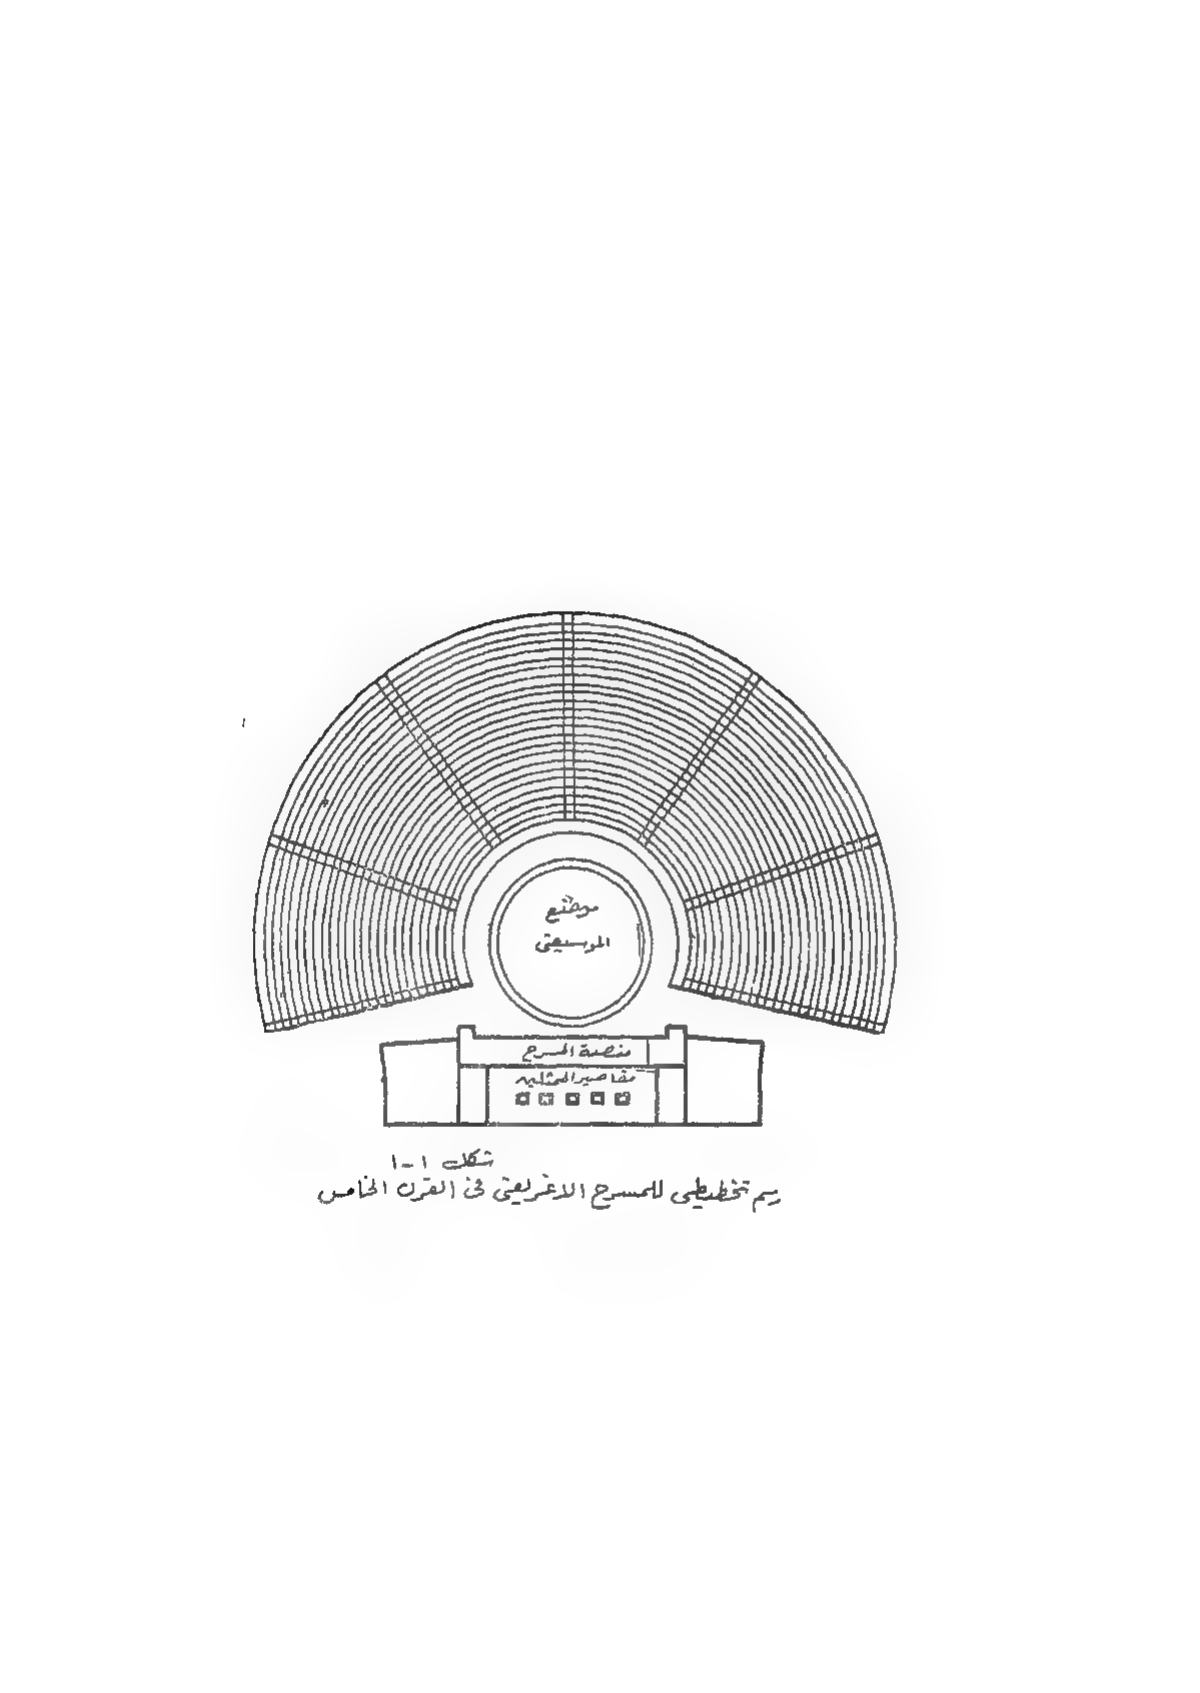 موضع
الموسيقى
منصة المسرح
مقاصير الممثلين
شكل ١-١
رسم تخطيطى للمسرح الاغريقى فى القرن الخامس